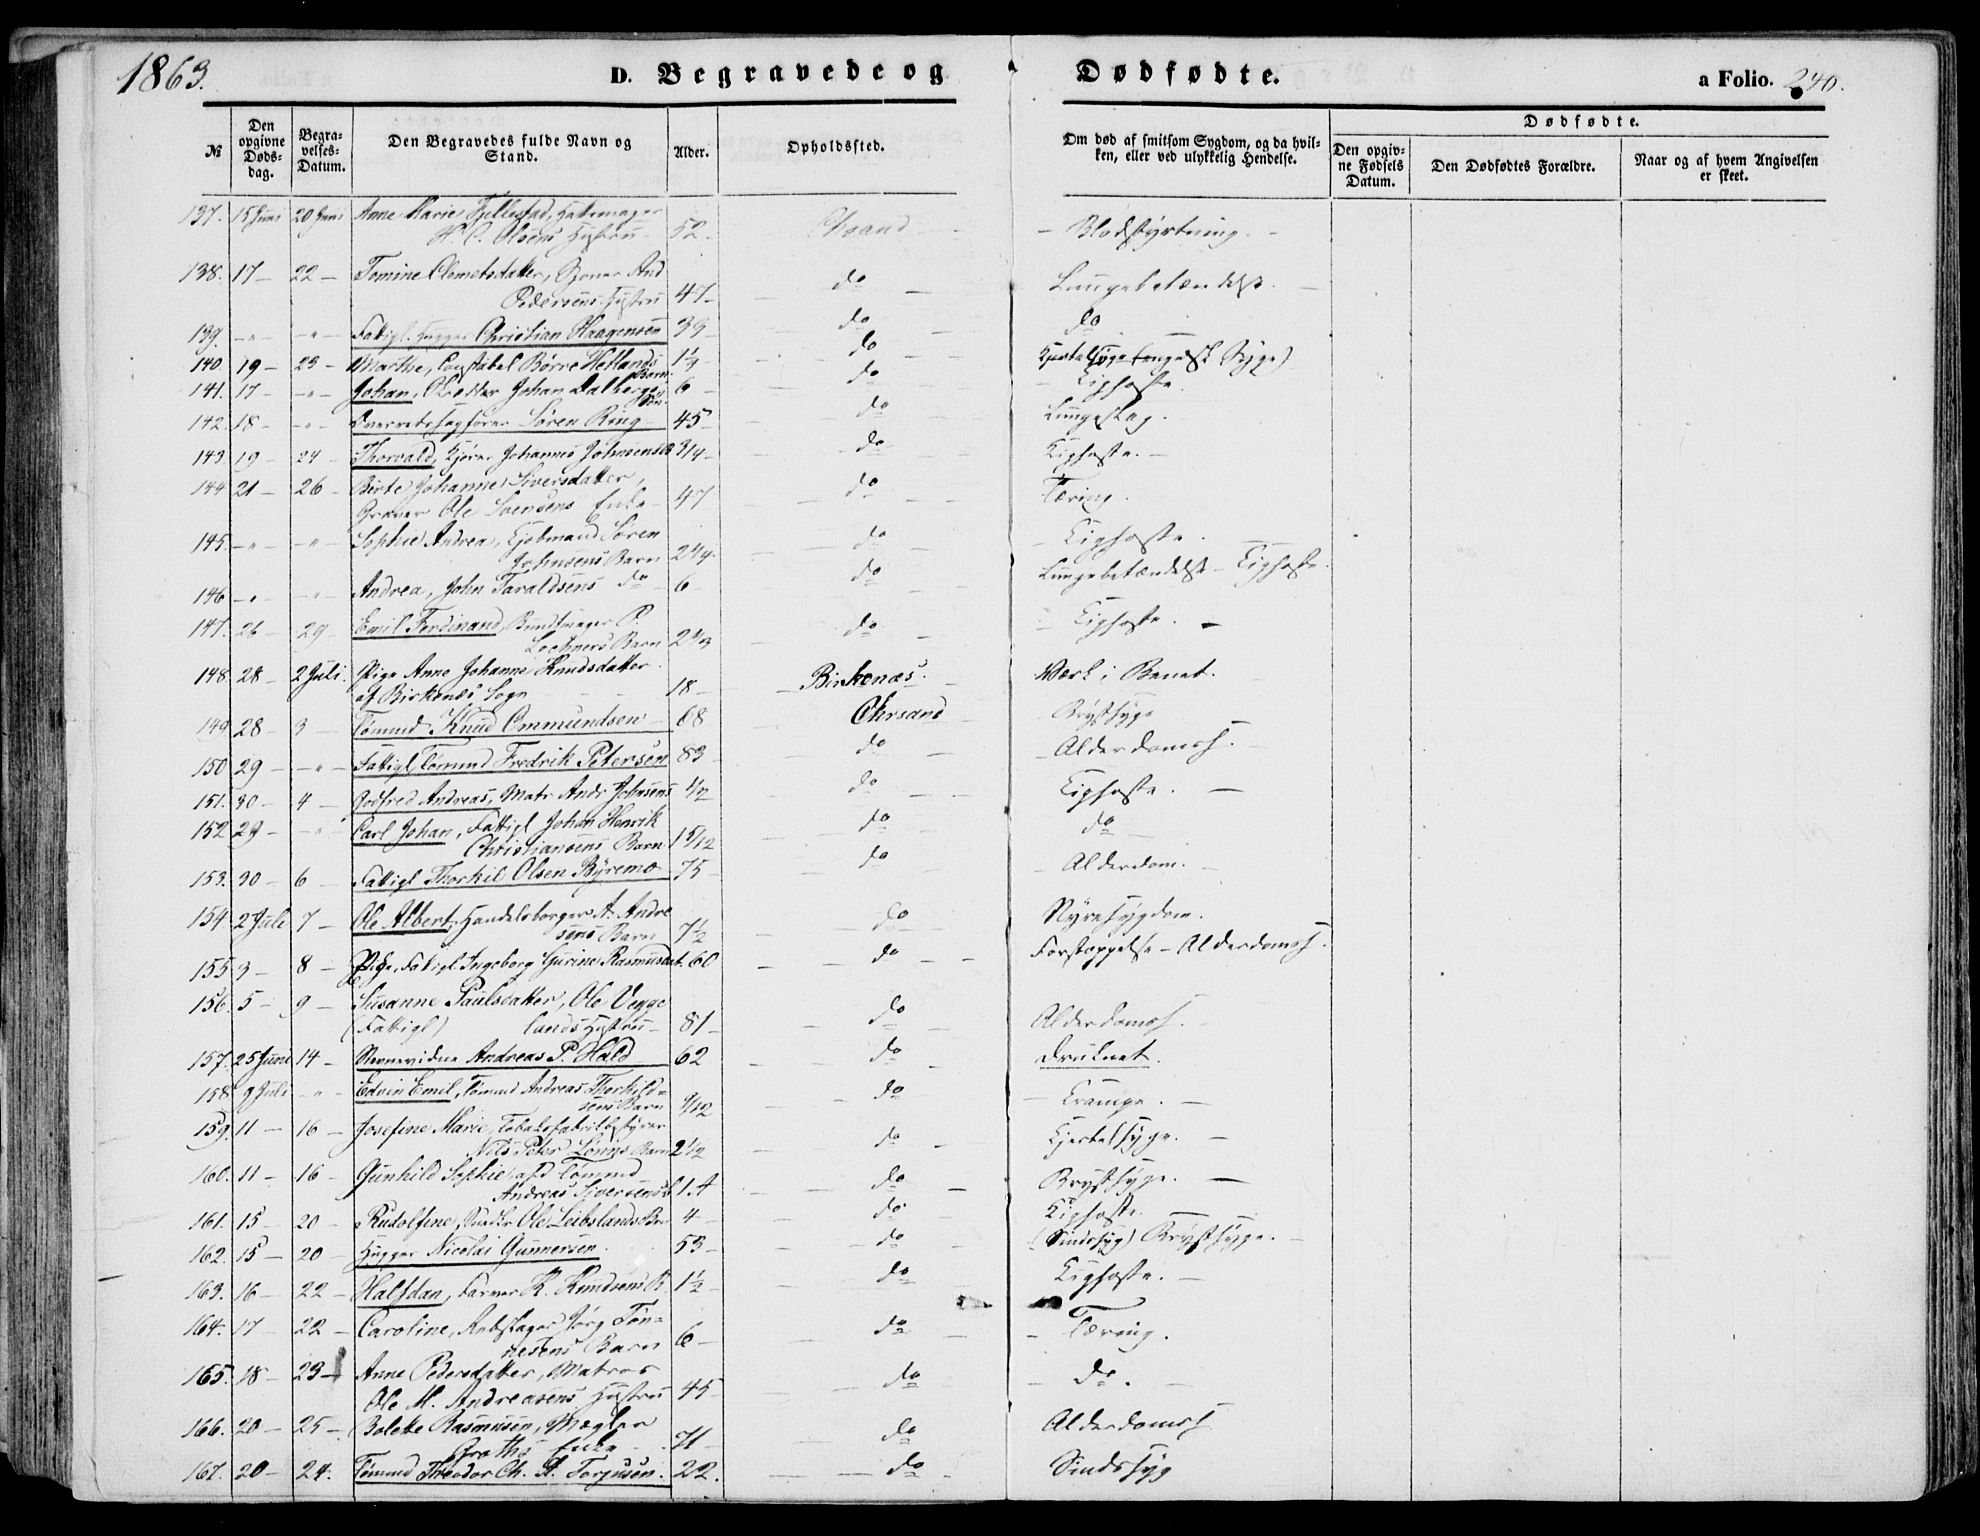 1863.
D. Begravede og Dødfødte.
a Folio. 240.
№
Den opgivne Døds-dag.
Begra-velses-Datum.
Den Begravedes fulde Navn og Stand.
Alder.
Opholdssted.
Om død af smitsom Sygdom, og da hvil-ken, eller ved ulykkelig Hendelse.
Dødfødte.
Den opgiv-ne Fødsels Datum.
Den Dødfødtes Forældre.
Naar og af hvem Angivelsen er skeet.
137. 15 Juni 20 Juni Anne Marie Fjellestad, Hattemager
H. C. Olsens Hustru 52. Chrsand Blodstyrtning.
138. 17 - 22 - Tomine Clemetsdatter, And
Pedersens Hustru 47 - do Lungebetændelse.
139. - " - - " - Fattigl. Hugger Christian Haagensen 39 - do do
140. 19 - 23 - Marthe, Constabel Børre Hetlands Barn 1 1/3 do Kjertelsyge (engelsk Syge)
141. 17 - - " - Johan, Johan Dalbergs Søn 6 - do Kighoste.
142. 18 - - " - Overretssagfører Søren Ring 45 - do Lungeslag.
143. 19 - 24 - Thorvald, Kjører Johannes Johnsens B 3/4 - do Kighoste. -
144. 21 - 26 - Berte Johanne Siversdatter,
Graver Ole Svensens Enke - 47 do Tæring.
145. - " - - " - Sophie Andrea, Kjøbmand Søren
Johnsens Barn 2 1/4. do Kighoste.
146. - " - - " - Andrea, John Taraldsens do - 6 - do Lungebetændelse - Kighoste.
147. 26 - 29 - Emil Ferdinand, Bundtmager P.
Lochners Barn 2 2/3 do Kighoste. -
148. 28 - 2 Juli. Pige Anne Johanne Knudsdatter
af Birkenæs Sogn 18 - Birkenæs. Værk i Benet.
149. 28 - 3 - Tømmd Knud Ommundsen 68 Chrsand Brystsyge
150. 29 - - " - Fattigl Tømmd Fredrik Petersen 83 - do Alderdomss.
151. 30 - 4 - Godfred Andreas, Matr Andr Johnsens 1/2 do Kighoste. -
152. 29 - - " - Carl Johan, Fattigl Johan Henrik
Christiansens Barn 1 5/12 do do
153. 30 - 6 - Fattigl Thorkil Olsen Byremo 75 - do Alderdom. -
154. 2 Juli 7 - Ole Albert, Handelsborger A. Andre
sens Barn 7 1/2 do Nyresygdom.
155. 3 - 8 - Pige, Fattigl. Ingeborg Gurine Rasmusdat. 60 do Forstoppelse - Alderdomss.
156. 5 - 9 - Susanne Paulsdatter, Ole Vegge
(Fattigl) lands Hustru - 81 - do Alderdomss. -
157. 25 Juni 14 - Stevnevidne Andreas P. Hald 62 do Druknet.
158. 9 Juli - " - Edvin Emil, Tømmd Andreas Thorkild-
sens Barn 9/12 do Krampe. -
159. 11 - 16 - Josefine Marie, Tobaksfabrikbestyrer
Nils Peter Barn 2 1/2 do Kjertelsyge. -
160. 11 - 16 - Gunhild Sophie, afd Tømmd
Andreas Siversens 14 do Brystsyge. -
161. 15 - 20 - Rudolfine, Snedkr Ole Leibslands Brn 4 - do Kighoste.
162. 15 - 20 - Hugger Nicolai Gunnersen. 53 - do (Sindssyg) Brystsyge. -
163. 16 - 22 - Halfdan, Farver K. Knudsens B. 1 1/2 - do Kighoste. -
164. 17 - 22 - Caroline, Rebslager Jørg Tøn-
nesens Barn 6 - do Tæring.
165. 18 - 23 - Anne Pedersdatter, Matros
Ole M. Andreasens Hustru 45 - do do. -
166. 20 - 25 - Bolette Rasmusen, Mægler
Groths Enke - 71 - do Alderdomss
167. 20 - 24. Tømmd Theodor Ch. A. Torjusen. 22. do Sindssyg